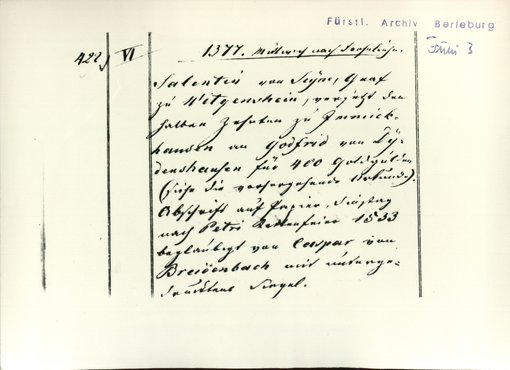 Fürstl. Archiv Berleburg
Juni 3
422) VI
1377. Mittwoch nach
Salentin von Seyn, Graf
zu Witgenstein, versetzt den
halben Zehnten zu Emmick-
hausen an Godfrid von Dy-
denshausen für 400 Goldgülden
(siehe die vorhergehende Urkunde).
Abschrift auf Papier, Dinstag
nach Petri Kettenfeier 1533
beglaubigt von Caspar von
Breidenbach mit unterge-
drucktem Siegel.